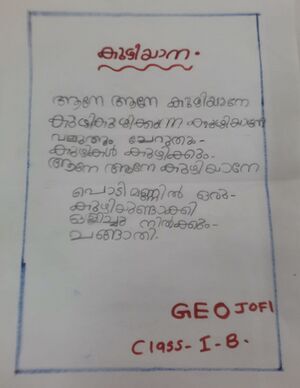 കുഴിയാന.
ആനേ ആനേ കുഴിയാനേ
കുഴികുഴിക്കുന്ന കുഴിയാനേ
വമ്പനും ചെറുതും-
കുഴികൾ കുഴിക്കും.
ആനേ ആനേ കുഴിയാനേ
പൊടിമണ്ണിൽ ഒരു-
കുഴിയുണ്ടാക്കി
ഒളിച്ചു നിൽക്കും-
ചങ്ങാതി.
GEO JOFI
Class-I-B.